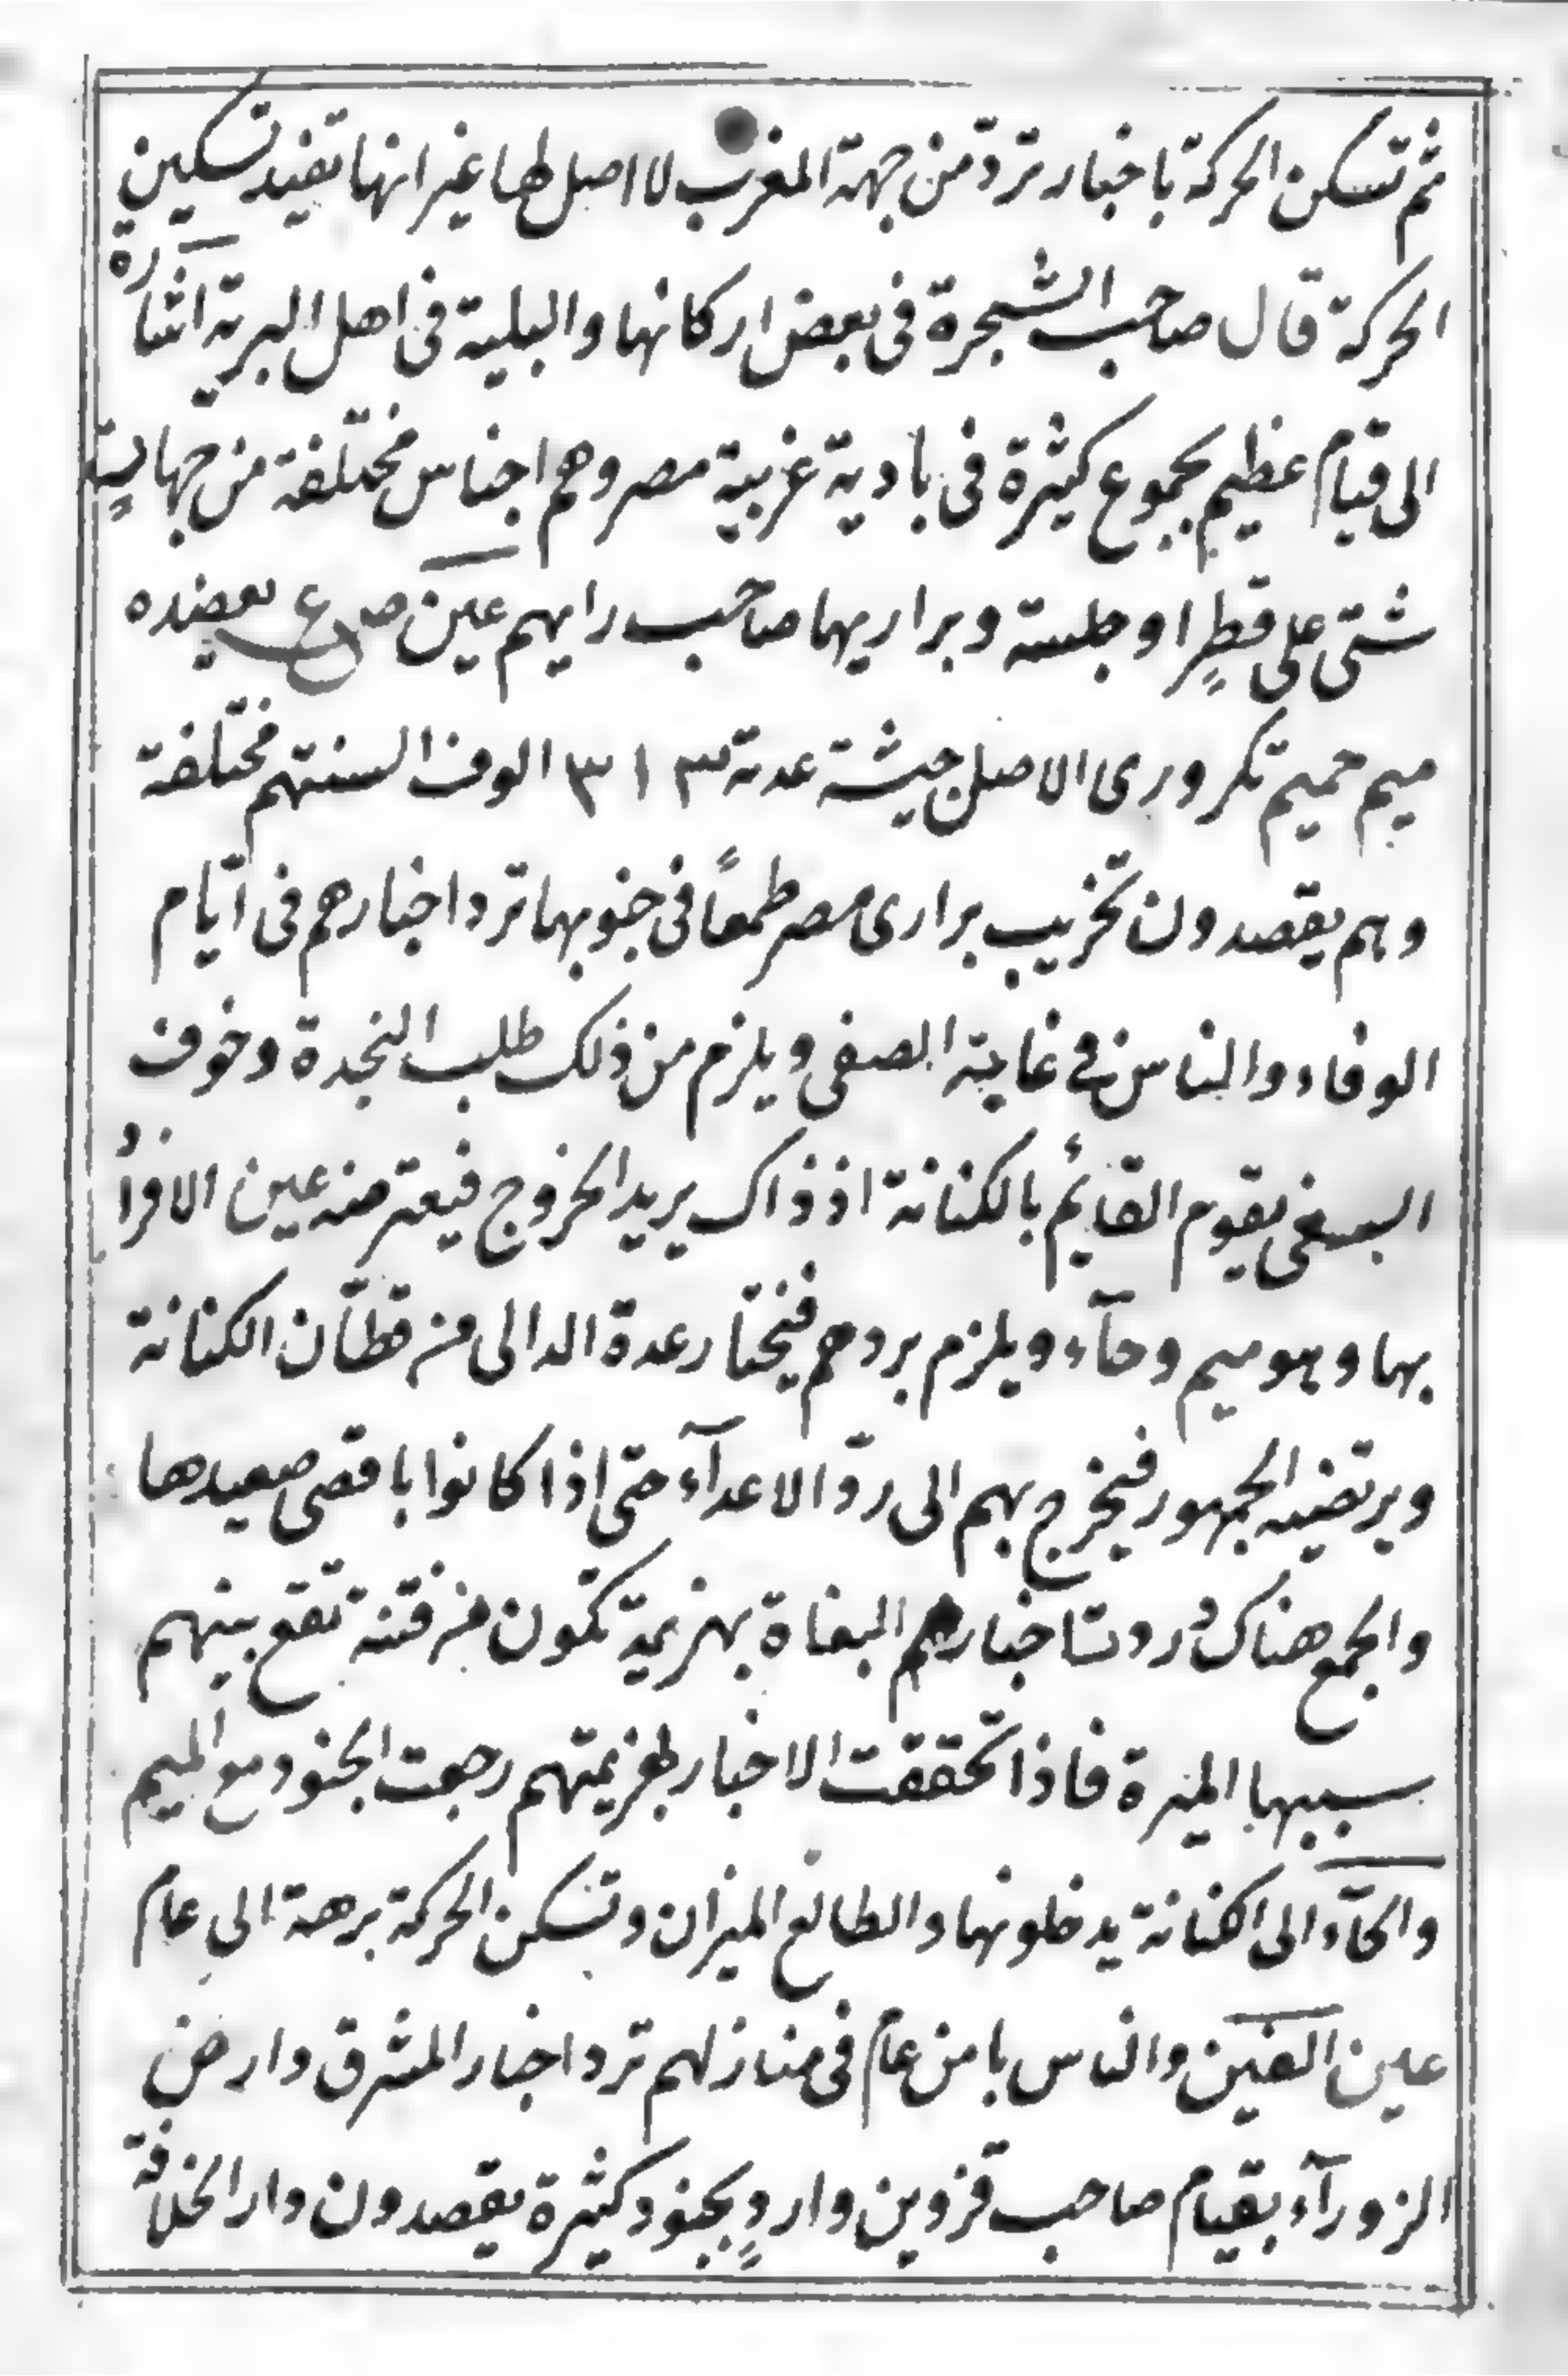 ثم تسكن الحركة باخبار تردّ من جهة المغرب لا اصل لها غير انها تفيد تسكين
الحركة قال صاحب الشجرة فى بعض اركانها والبلية فى اهل البرية اشارة
الى قيام عظيم بجموع كثيرة فى بادية غربية مصر وهم اجناس مختلفة من جهات
شتى على قطرٍ اوجلسة وبراريها صاحب رايهم عين ص ع يعضده
ميم حميم تكرورى الاصل جيشة عدته ٣١٣ الوف السنتهم مختلفة
وهم يقصدون تخريب برارى مصر طمعاً فى جنوبها ترد اخبارهم فى ايّام
الوفاء والناس فى غاية الصفى ويلزم من ذلك طلب النجدة وخوف
السغى يقوم القائم بالكنانة اذ ذاك يريد الخروج فيعترضه عين الافراد
بها وهو ميم وحآء ويلزم بردهم فيختار عدة الدالى من قطّان الكنانة
ويرتضيه الجمهور فيخرج بهم الى ردّ الاعدآء حتى اذا كانوا باقصى صعيدها
والجمع هناك وردت اخبارهم البغاة بهزيمة تكون من فتنة تقع بينهم
سببها الميرة فاذا تحققت الاخبار بهزيمتهم رجعت الجنود مع الميم
والحآء الى الكنانة يدخلونها والطالع الميزان وتسكن الحركة برهة الى عام
عين الغين والناس بامن عام فى منازلهم ترد اخبار المشرق وارض
الزورآء بقيام صاحب قزوين واردٍ بجنود كثيرة يقصدون دار الخلافة